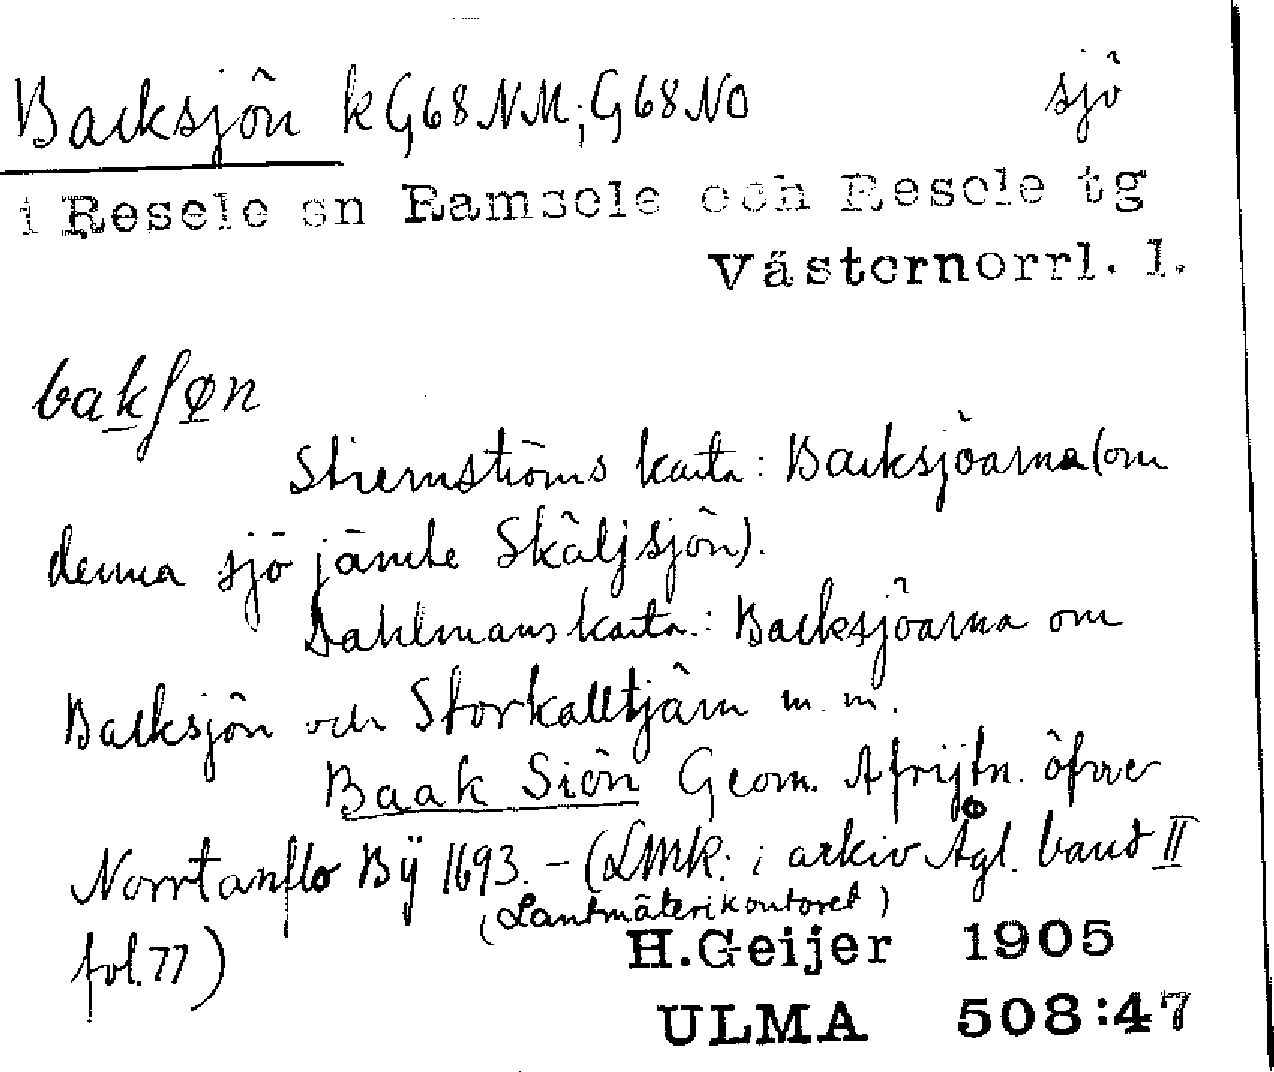 Backsjön k G68NM; G68NO sjö
i Resele sn Ramsele och Resele tg
Västernorrl. l.
bakʃøn
Stiernströms karta: Backsjöarna (om
denna sjö jämte Skäljsjön).
Dahlmans karta: Backsjöarna om
Backsjön och Storkalltjärn m. m.
Baak Siön Geom. Afrijtn. öfver
Norrtanflo Bÿ 1693. – (LMK: i arkiv Ågl. band II
(Lantmäterikontoret)
fol. 77)
H.Geijer 1905
ULMA 508:47